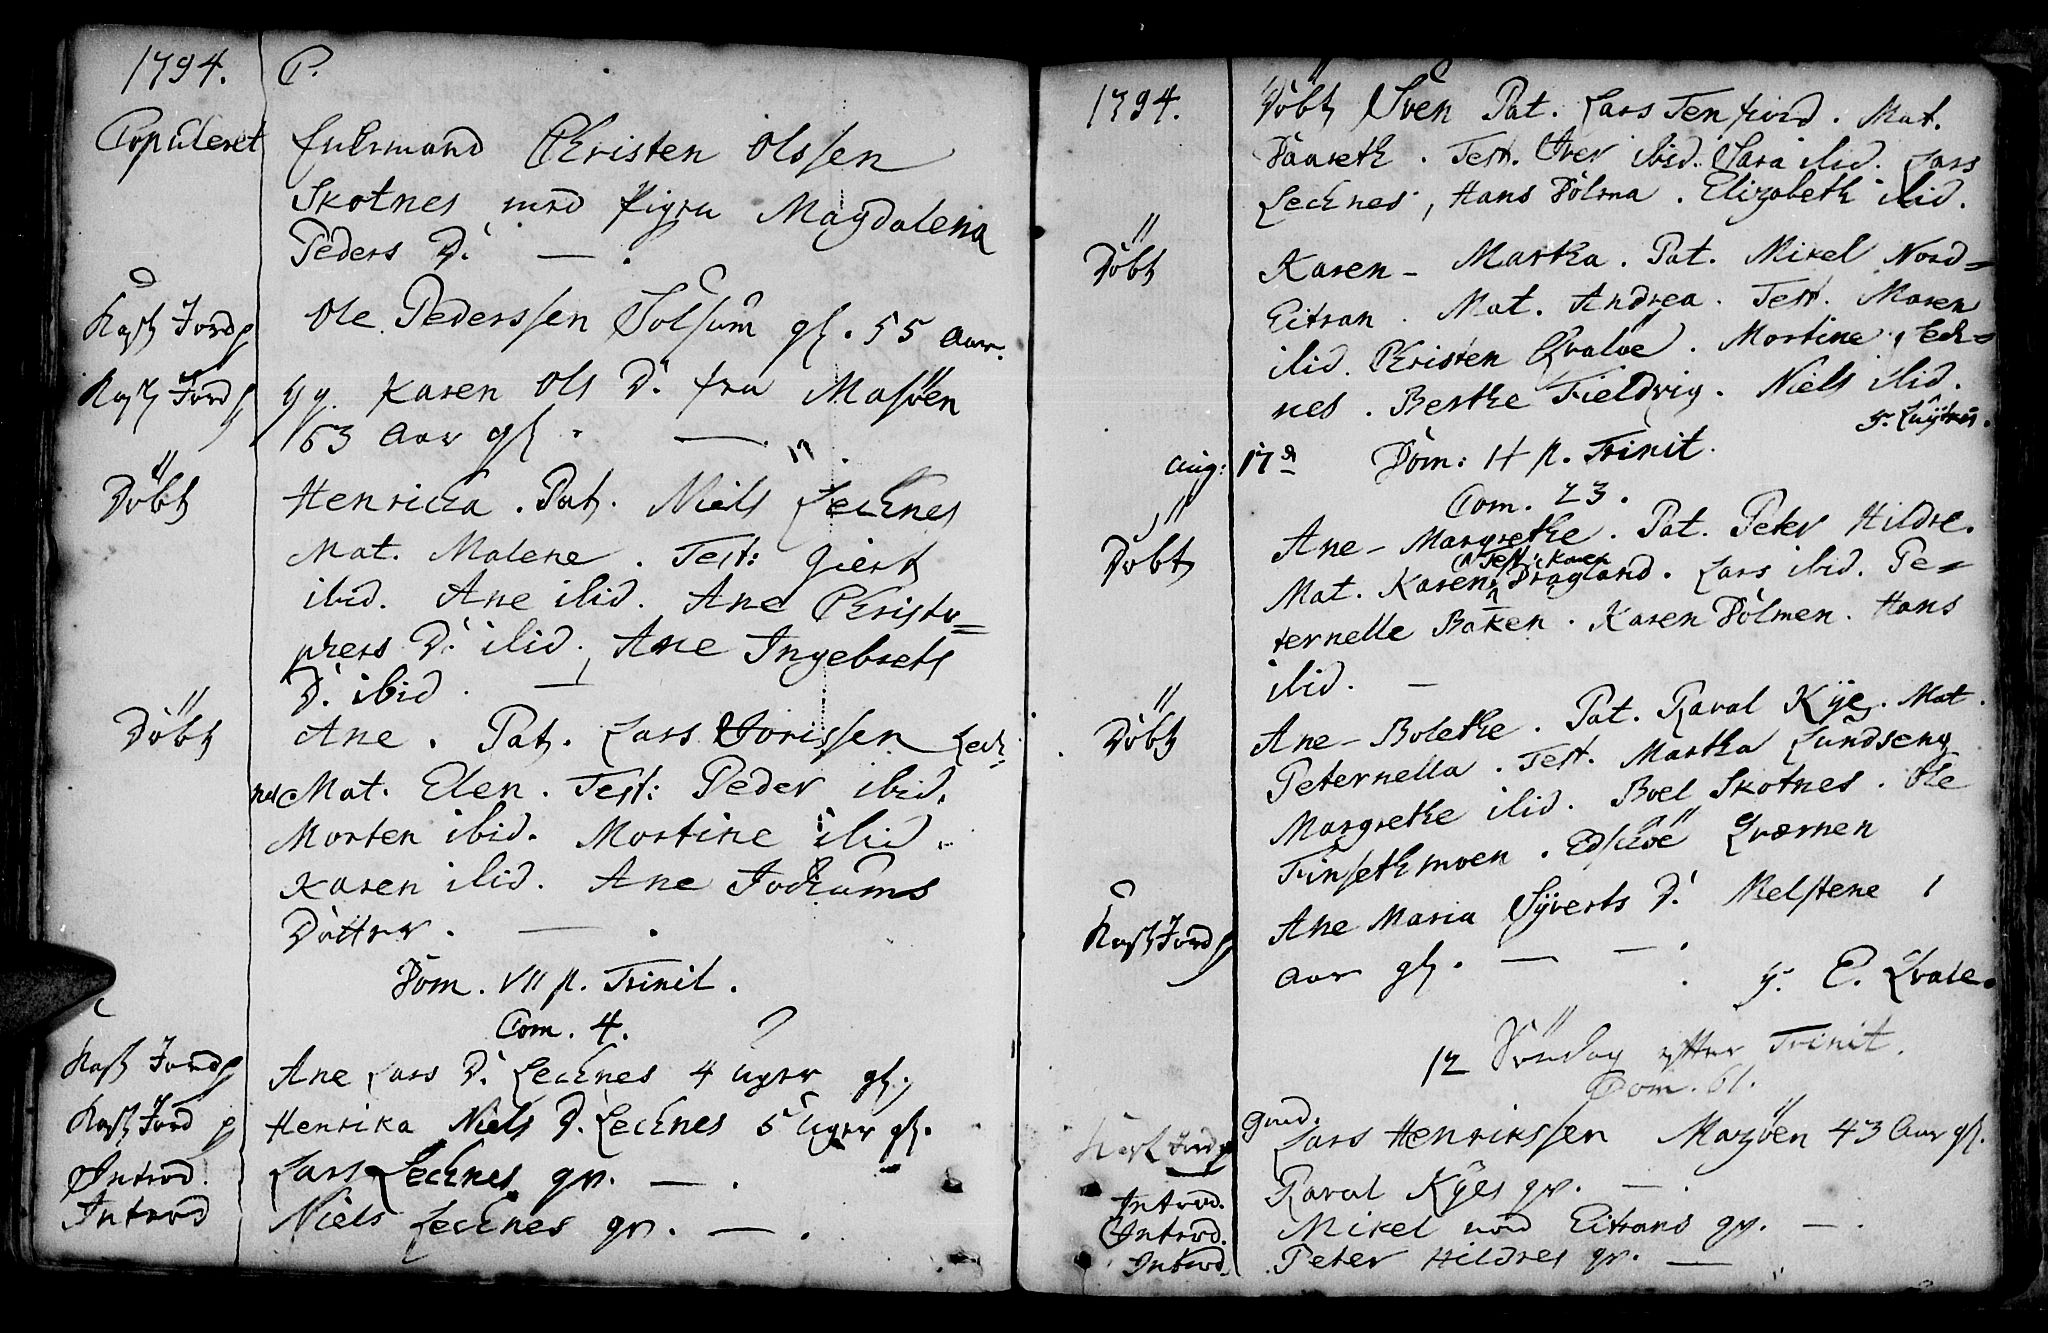 1794. P.
Copuleret Enkemand Christen Olssen
Skotnes med Pigen Magdalena
Peders D. —.
Kast Jord p Ole Pederssen Solsum gl. 55 Aar.
Kast Jord p Karen Ols D. fra Masöen
63 Aar gl. —.
Döbt Henricha. Pat. Niels Lechnes
Mat. Malene. Test: Giert
ibid. Ane ibid. Ane Christo=
phers D. ibid. Ane Ingebrets
D. ibid. —
Döbt Ane. Pat. Lars Jorissen Lech=
nes Mat. Elen. Test: Peder ibid.
Morten ibid. Mortine ibid.
Karen ibid. Ane Jochums
Dötter. —.
Dom. VII p. Trinit.
Com. 4.
Kast Jord p Ane Lars D. Lechnes 4 Uger gl.
Kast Jord p Henrika Niels D. Lechnes 5 Uger gl.
Introd. Lars Lechnes qv. —.
Introd Niels Lechnes qv. —.
1794. Döbt Sven Pat. Lars Tenfiord. Mat.
Baareth. Test. Iver ibid. Sara ibid. Lars
Lechnes, Hans Dolma. Elizabeth ibid.
Döbt Karen-Martha. Pat. Mikel Nord=
Eitran. Mat. Andrea. Test. Maren
ibid. Christen Qvalöe. Mortine Lech=
nes. Berthe Fieldvig. Niels ibid.
Aug: 17d Dom: 11 p. Trinit.
Com. 23.
Döbt Ane-Margrethe. Pat. Peter Hildre.
Mat. Karen. Test: Karen Dragland. Lars ibid. Pe=
ternelle Baken. Karen Dolmen. Hans
ibid. —
Döbt Ane-Bolethe. Pat. Raval Kÿe. Mat.
Peternella. Test. Martha Lundseng
Margrethe ibid. Boel Skotnes. Ole
Finsethmoen. Edsleöe Qværnen
Kast Jord p Ane Maria Syverts D. Melstene 1
Aar gl. — —.
E. Qvale.
12 Söndag efter Trinit.
Com. 61.
Kast Jord p Gmd. Lars Henrikssen Mazöen 43 Aar gl.
Introd. Raval Kÿes qv. —.
Introd. Mikel Nord Eitrans qv. —.
Introd. Peter Hildres qv. —